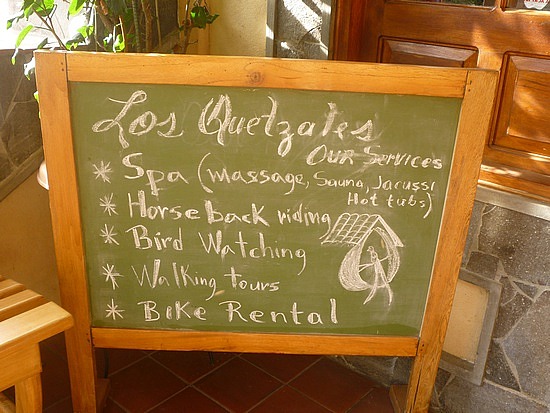 Los Quetzales
Our Services
* Spa (massage, Sauna, Jacussi
Hot tubs)
* Horse back riding
* Bird Watching
* Walking tours
* Bike Rental